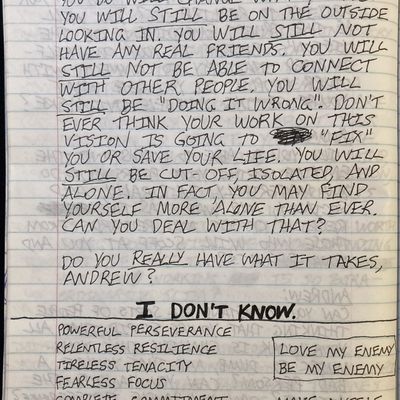 YOU DO WILL CHANGE
YOU WILL STILL BE ON THE OUTSIDE
LOOKING IN. YOU WILL STILL NOT
HAVE ANY REAL FRIENDS. YOU WILL
STILL NOT BE ABLE TO CONNECT
WITH OTHER PEOPLE. YOU WILL
STILL BE "DOING IT WRONG". DON'T
EVER THINK YOUR WORK ON THIS
VISION IS GOING TO "FIX"
YOU OR SAVE YOUR LIFE. YOU WILL
STILL BE CUT-OFF, ISOLATED, AND
ALONE. IN FACT, YOU MAY FIND
YOURSELF MORE ALONE THAN EVER.
CAN YOU DEAL WITH THAT?
DO YOU REALLY HAVE WHAT IT TAKES,
ANDREW?
I DON'T KNOW.
POWERFUL PERSEVERANCE
RELENTLESS RESILIENCE
TIRELESS TENACITY
FEARLESS FOCUS
COMPLETE COMMITMENT
LOVE MY ENEMY
BE MY ENEMY